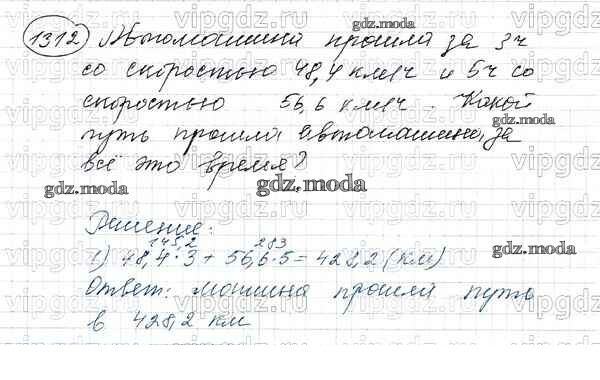 1312 Автомашина прошла за 3ч
со скоростью 48,4 км/ч и 5ч со
скоростью 56,6 км/ч. Какой
путь прошла автомашина, за
всё это время?
gdz.moda
Решение:
145,2 283
1) 48,4·3 + 56,6·5 = 428,2 (км)
Ответ: машина прошла путь
в 428,2 км